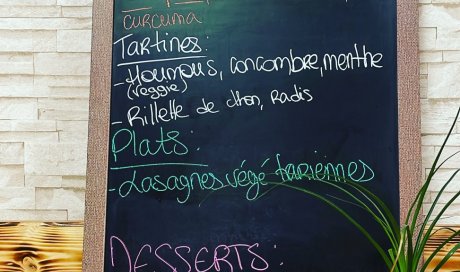 curcuma
Tartines:
- Houmous, concombre, menthe
(veggie)
- Rillette de thon, Radis
Plats:
- Lasagnes végétariennes
DESSERTS: